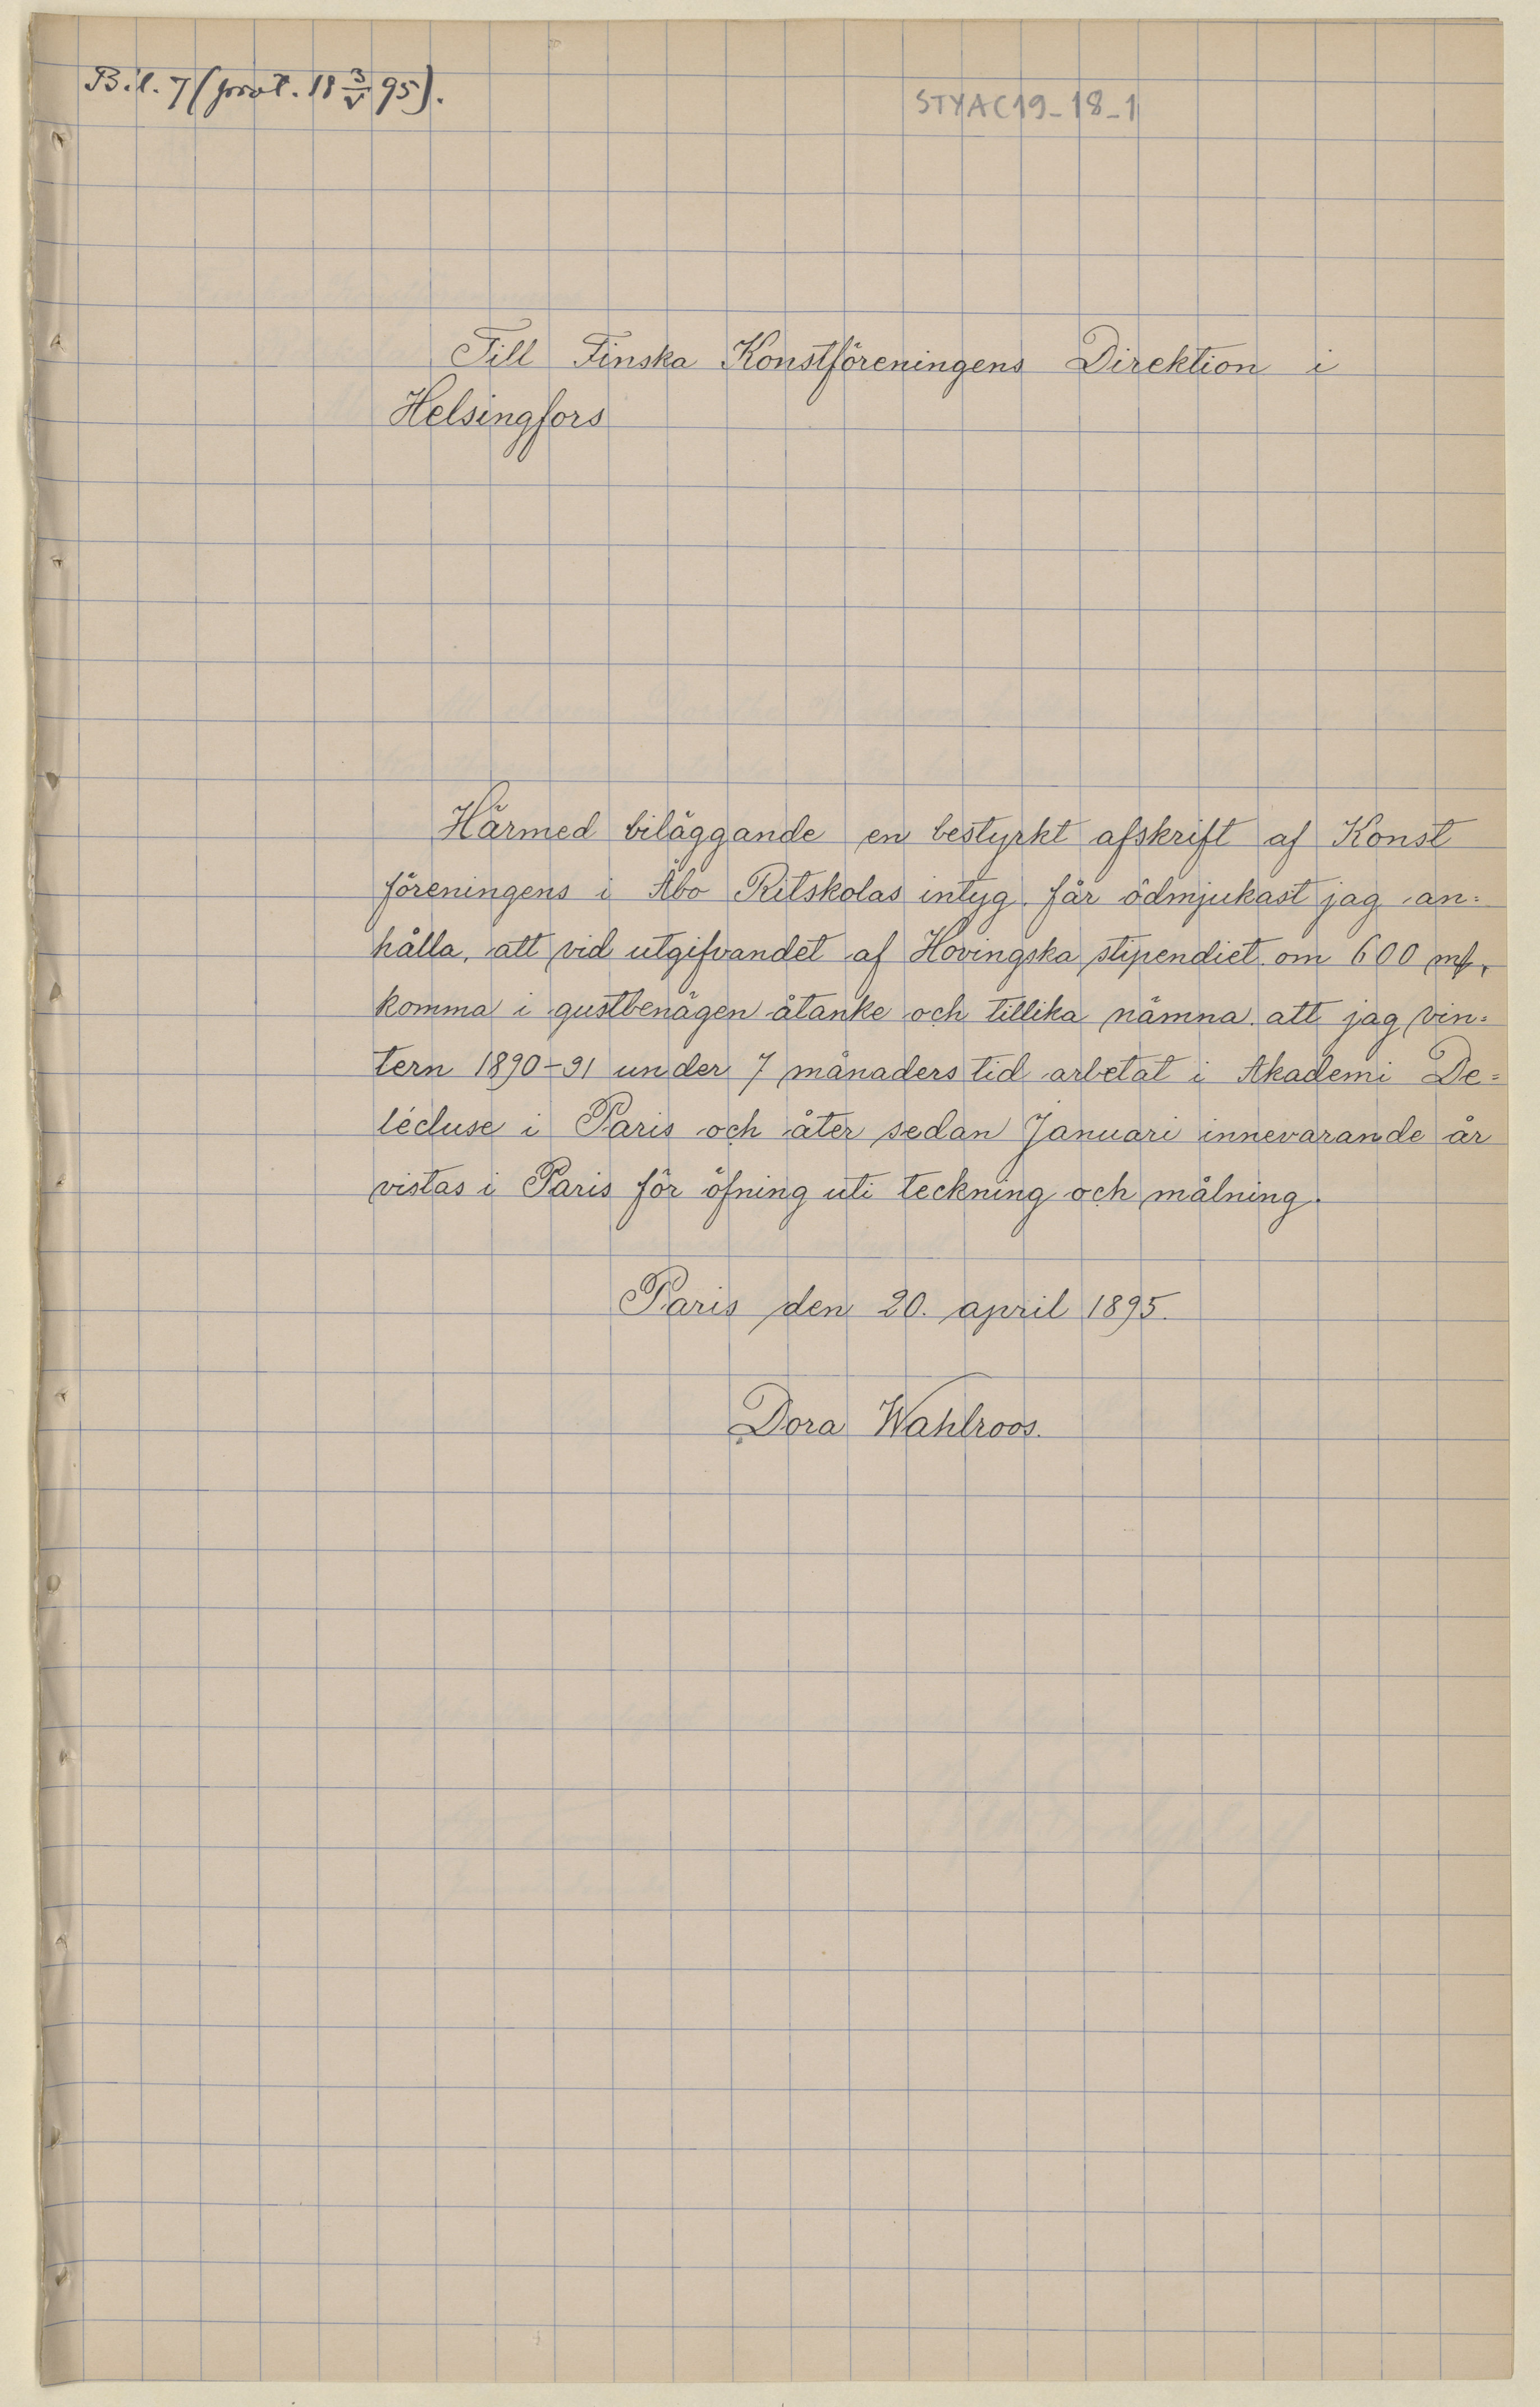 Bil. 7 (prot. 18 3/V 95).
STYAC19-18-1
Till Finska Konstföreningens Direktion i
Helsingfors
Härmed biläggande en bestyrkt afskrift af Konst
föreningens i Åbo Ritskolas intyg får ödmjukast jag an=
hålla, att vid utgifvandet af Hovingska stipendiet om 600 mk,
komma i gustbenägen åtanke och tillika nämna att jag vin=
tern 1890-91 under 7 månaders tid arbetat i Akademi De=
lécluse i Paris och åter sedan Januari innevarande år
vistas i Paris för öfning uti teckning och målning.
Paris den 20. april 1895.
Dora Wahlroos.